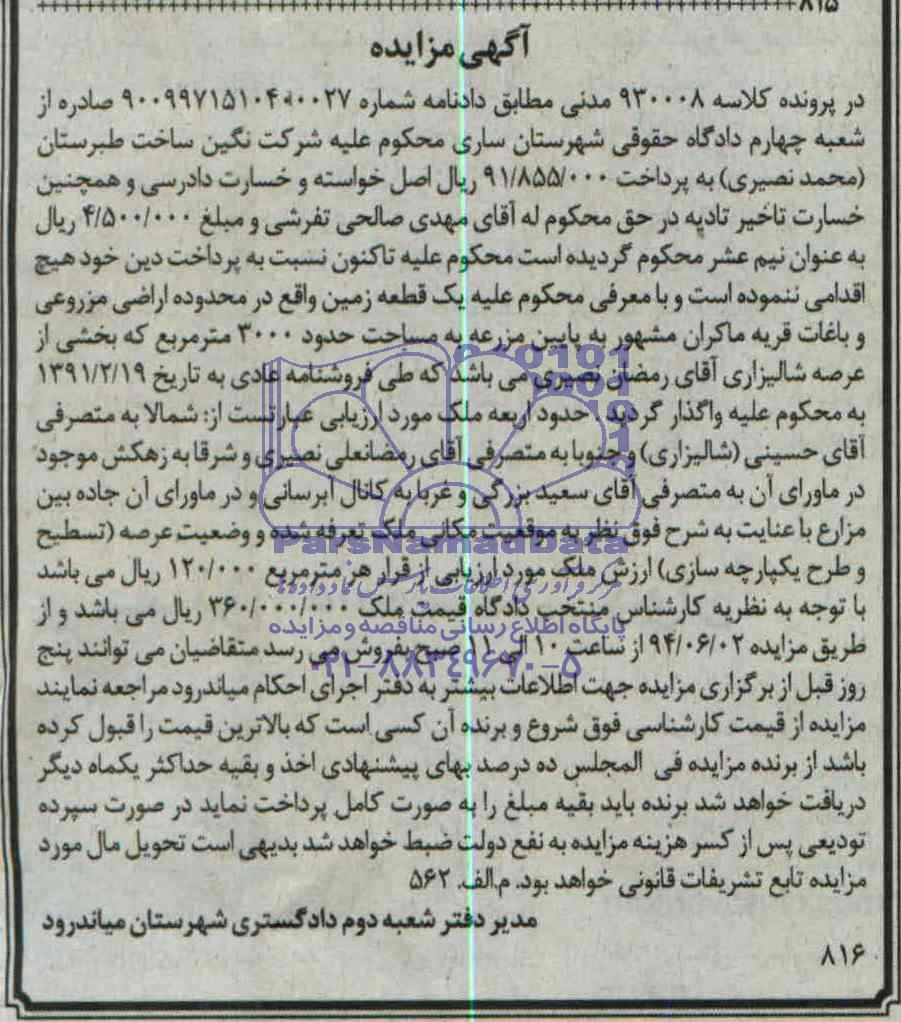 ۸۱۵
آگهی مزایده
در پرونده کلاسه ۹۳۰۰۰۸ مدنی مطابق دادنامه شماره ۹۰۰۹۹۷۱۵۱۰۴۰۰۰۲۷ صادره از
شعبه چهارم دادگاه حقوقی شهرستان ساری محکوم علیه شرکت نگین ساخت طبرستان
(محمد نصیری) به پرداخت ۹۱/۸۵۵/۰۰۰ ریال اصل خواسته و خسارت دادرسی و همچنین
خسارت تاخیر تادیه در حق محکوم له آقای مهدی صالحی تفرشی و مبلغ ۴/۵۰۰/۰۰۰ ریال
به عنوان نیم عشر محکوم گردیده است محکوم علیه تاکنون نسبت به پرداخت دین خود هیچ
اقدامی ننموده است و با معرفی محکوم علیه یک قطعه زمین واقع در محدوده اراضی مزروعی
و باغات قریه ماکران مشهور به پایین مزرعه به مساحت حدود ۳۰۰۰ مترمربع که بخشی از
عرصه شالیزاری آقای رمضان نصیری می باشد که طی فروشنامه عادی به تاریخ ۱۳۹۱/۲/۱۹
به محکوم علیه واگذار گردید. حدود اربعه ملک مورد ارزیابی عبارتست از: شمالا به متصرفی
آقای حسینی (شالیزاری) و جنوبا به متصرفی آقای رمضانعلی نصیری و شرقا به زهکش موجود
در ماورای آن به متصرفی آقای سعید بزرگی و غربا به کانال آبرسانی و در ماورای آن جاده بین
مزارع با عنایت به شرح فوق نظر به موقعیت مکانی ملک تعرفه شده و وضعیت عرصه (تسطیح
و طرح یکپارچه سازی) ارزش ملک مورد ارزیابی از قرار هر مترمربع ۱۲۰/۰۰۰ ریال می باشد
با توجه به نظریه کارشناس منتخب دادگاه قیمت ملک ۳۶۰/۰۰۰/۰۰۰ ریال می باشد و از
طریق مزایده ۹۴/۰۶/۰۲ از ساعت ۱۰ الی ۱۱ صبح بفروش می رسد متقاضیان می توانند پنج
روز قبل از برگزاری مزایده جهت اطلاعات بیشتر به دفتر اجرای احکام میاندرود مراجعه نمایند
مزایده از قیمت کارشناسی فوق شروع و برنده آن کسی است که بالاترین قیمت را قبول کرده
باشد از برنده مزایده فی المجلس ده درصد بهای پیشنهادی اخذ و بقیه حداکثر یکماه دیگر
دریافت خواهد شد برنده باید بقیه مبلغ را به صورت کامل پرداخت نماید در صورت سپرده
تودیعی پس از کسر هزینه مزایده به نفع دولت ضبط خواهد شد بدیهی است تحویل مال مورد
مزایده تابع تشریفات قانونی خواهد بود. م.الف. ۵۶۲
مدیر دفتر شعبه دوم دادگستری شهرستان میاندرود
۸۱۶
ParsNamadData
مرکز فرآوری اطلاعات پارس نماد داده ها
پایگاه اطلاع رسانی مناقصه و مزایده
۰۲۱-۸۸۳۴۹۶۷۰-۵